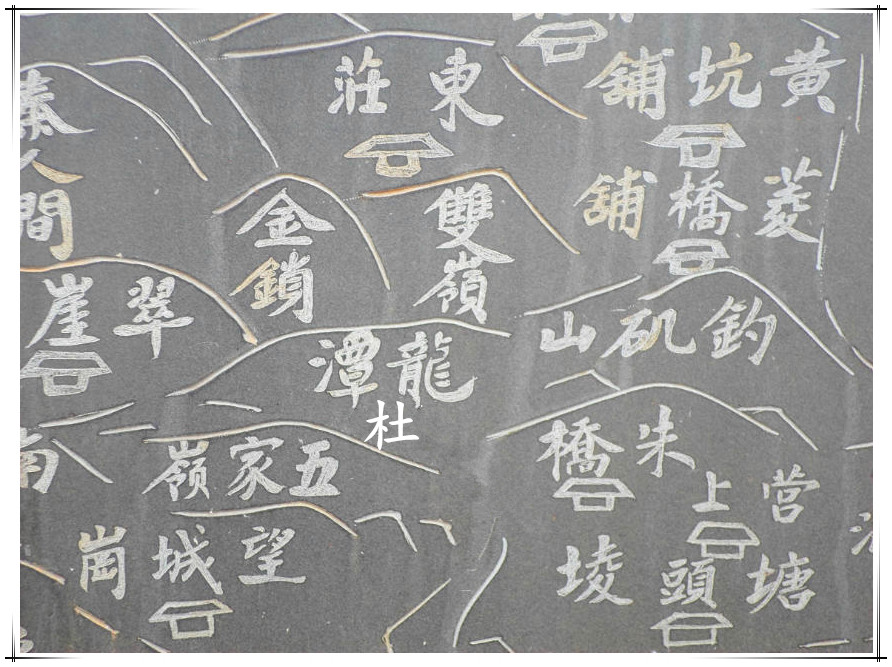 黄坑鋪
東莊
菱橋鋪
雙嶺
金鎖
人間
釣矶山
翠崖
龍潭
杜
朱橋
五家嶺
南
营上
望城崗
塘頭堎